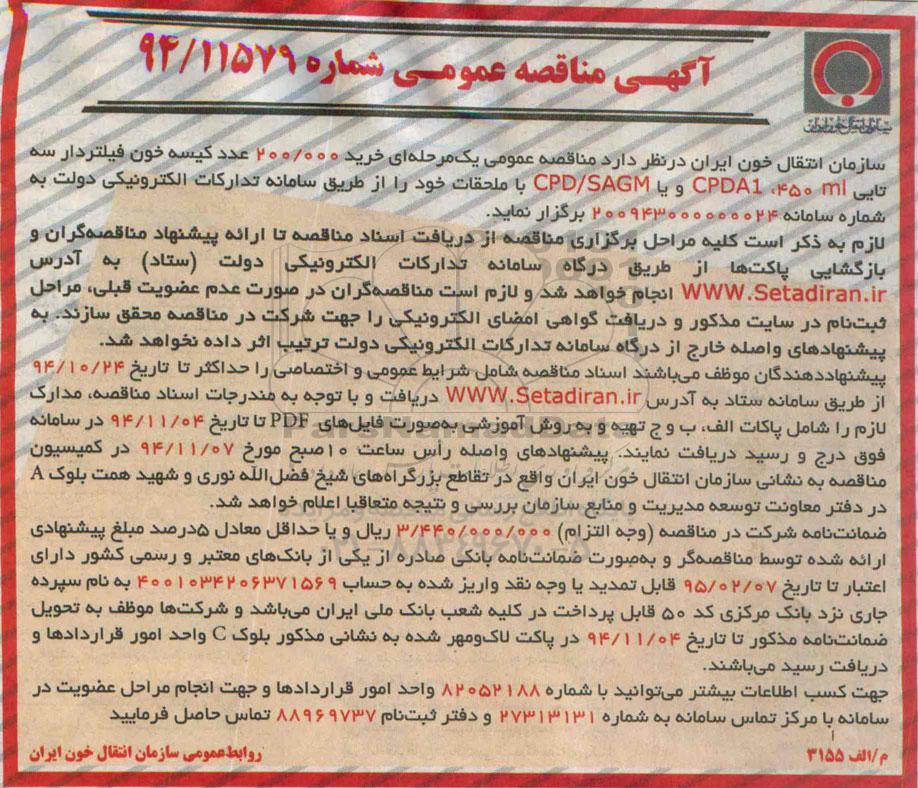 آگهی مناقصه عمومی شماره ۹۴/۱۱۵۷۹
سازمان انتقال خون ایران
سازمان انتقال خون ایران درنظر دارد مناقصه عمومی یک‌مرحله‌ای خرید ۲۰۰/۰۰۰ عدد کیسه خون فیلتردار سه
تایی CPDA1 ،۴۵۰ ml و یا CPD/SAGM با ملحقات خود را از طریق سامانه تدارکات الکترونیکی دولت به
شماره سامانه ۲۰۰۹۴۳۰۰۰۰۰۰۰۰۲۴ برگزار نماید.
لازم به ذکر است کلیه مراحل برگزاری مناقصه از دریافت اسناد مناقصه تا ارائه پیشنهاد مناقصه‌گران و
بازگشایی پاکت‌ها از طریق درگاه سامانه تدارکات الکترونیکی دولت (ستاد) به آدرس
WWW.Setadiran.ir انجام خواهد شد و لازم است مناقصه‌گران در صورت عدم عضویت قبلی، مراحل
ثبت‌نام در سایت مذکور و دریافت گواهی امضای الکترونیکی را جهت شرکت در مناقصه محقق سازند. به
پیشنهادهای واصله خارج از درگاه سامانه تدارکات الکترونیکی دولت ترتیب اثر داده نخواهد شد.
پیشنهاددهندگان موظف می‌باشند اسناد مناقصه شامل شرایط عمومی و اختصاصی را حداکثر تا تاریخ ۹۴/۱۰/۲۴
از طریق سامانه ستاد به آدرس WWW.Setadiran.ir دریافت و با توجه به مندرجات اسناد مناقصه، مدارک
لازم را شامل پاکات الف، ب و ج تهیه و به روش آموزشی به‌صورت فایل‌های PDF تا تاریخ ۹۴/۱۱/۰۴ در سامانه
فوق درج و رسید دریافت نمایند. پیشنهادهای واصله رأس ساعت ۱۰صبح مورخ ۹۴/۱۱/۰۷ در کمیسیون
مناقصه به نشانی سازمان انتقال خون ایران واقع در تقاطع بزرگراه‌های شیخ فضل‌الله نوری و شهید همت بلوک A
در دفتر معاونت توسعه مدیریت و منابع سازمان بررسی و نتیجه متعاقبا اعلام خواهد شد.
ضمانت‌نامه شرکت در مناقصه (وجه التزام) ۳/۴۴۰/۰۰۰/۰۰۰ ریال و یا حداقل معادل ۵درصد مبلغ پیشنهادی
ارائه شده توسط مناقصه‌گر و به‌صورت ضمانت‌نامه بانکی صادره از یکی از بانک‌های معتبر و رسمی کشور دارای
اعتبار تا تاریخ ۹۵/۰۲/۰۷ قابل تمدید یا وجه نقد واریز شده به حساب ۴۰۰۱۰۳۴۲۰۶۳۷۱۵۶۹ به نام سپرده
جاری نزد بانک مرکزی کد ۵۰ قابل پرداخت در کلیه شعب بانک ملی ایران می‌باشد و شرکت‌ها موظف به تحویل
ضمانت‌نامه مذکور تا تاریخ ۹۴/۱۱/۰۴ در پاکت لاک‌ومهر شده به نشانی مذکور بلوک C واحد امور قراردادها و
دریافت رسید می‌باشند.
جهت کسب اطلاعات بیشتر می‌توانید با شماره ۸۲۰۵۲۱۸۸ واحد امور قراردادها و جهت انجام مراحل عضویت در
سامانه با مرکز تماس سامانه به شماره ۲۷۳۱۳۱۳۱ و دفتر ثبت‌نام ۸۸۹۶۹۷۳۷ تماس حاصل فرمایید
م/الف ۳۱۵۵
روابط‌عمومی سازمان انتقال خون ایران
ParsNamadData